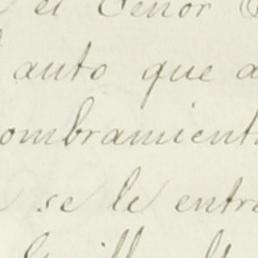 el Señor
auto que a
ombramient
se le entre